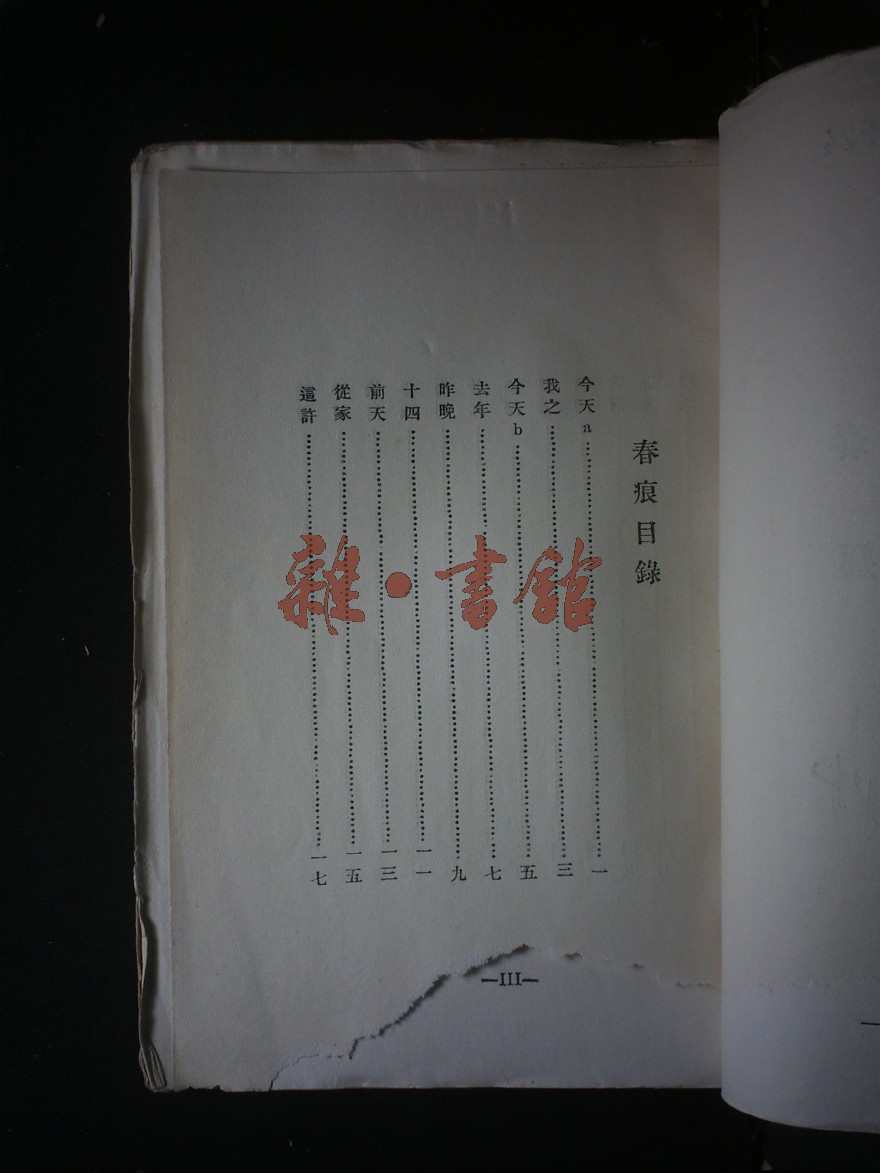 春痕目錄
今天a……一
我之……三
今天b……五
去年……七
昨晚……九
十四……一一
前天……一三
從家……一五
這許……一七
—III—
雜·書館